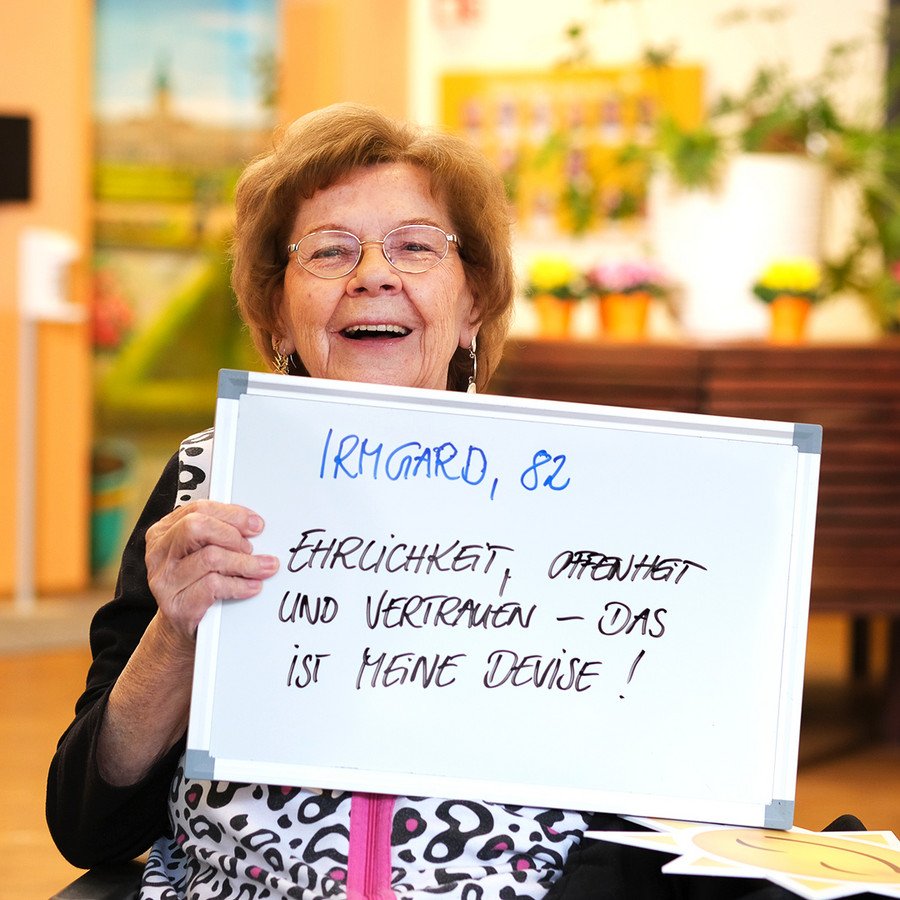 IRMGARD, 82
EHRLICHKEIT, OFFENHEIT
UND VERTRAUEN – DAS
IST MEINE DEVISE!